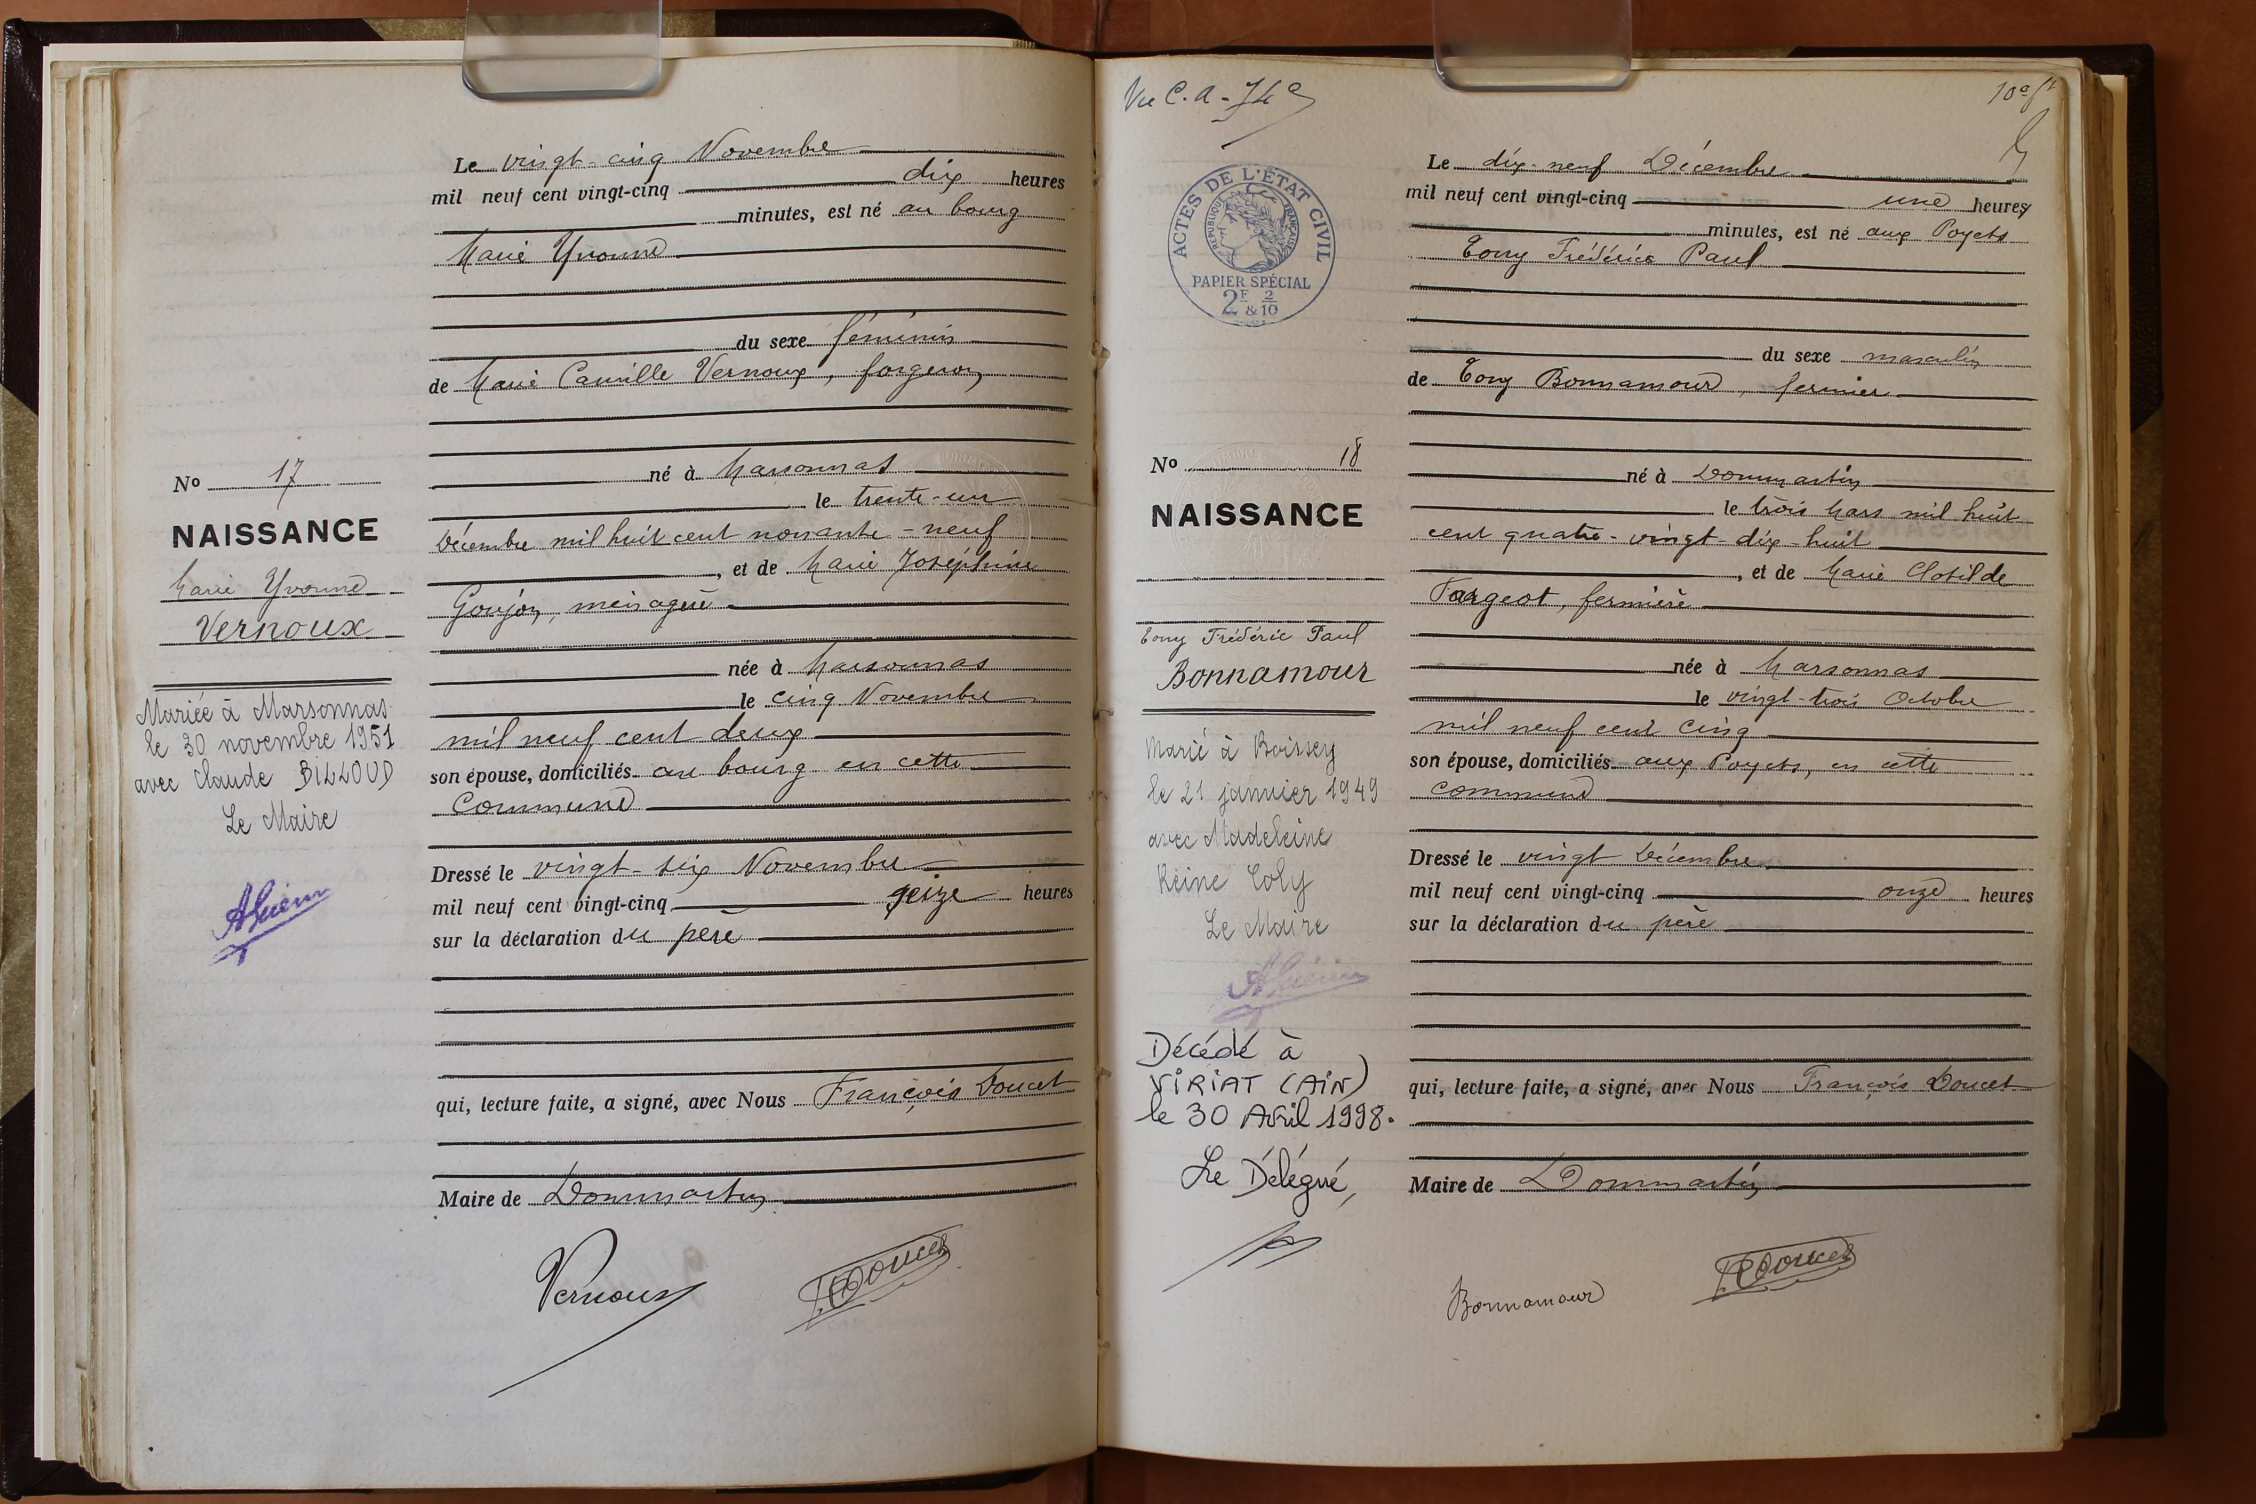 Le vingt-cinq Novembre
mil neuf cent vingt-cinq dix heures
minutes, est né au bourg
Marie Yvonne
du sexe féminin
de Marie Camille Vernoux, forgeron
né à Marsonnas
le trente-un
Décembre mil huit cent nonante-neuf
, et de Marie Joséphine
Goujon, ménagère
née à Marsonnas
le cinq Novembre
mil neuf cent deux
son épouse, domiciliés au bourg en cette
commune
Dressé le vingt-six Novembre
mil neuf cent vingt-cinq seize heures
sur la déclaration du père
qui, lecture faite, a signé, avec Nous François Doucet
Maire de Dommartin
Vernoux
F. Doucet
No 17
NAISSANCE
Marie Yvonne
Vernoux
Mariée à Marsonnas
le 30 novembre 1951
avec Claude BILLOUD
Le Maire
Vu C.A.
10e ft
ACTES DE L'ÉTAT CIVIL
RÉPUBLIQUE FRANÇAISE
PAPIER SPÉCIAL
2F & 2/10
No 18
NAISSANCE
Tony Frédéric Paul
Bonnamour
Marié à Boissey
le 21 janvier 1949
avec Madeleine
Reine Coly
Le Maire
Décédé à
VIRIAT (AIN)
le 30 Avril 1998.
Le Délégué,
Le dix-neuf Décembre
mil neuf cent vingt-cinq une heures
minutes, est né aux Poyets
Tony Frédéric Paul
du sexe masculin
de Tony Bonnamour, fermier
né à Dommartin
le trois Mars mil huit
cent quatre-vingt-dix-huit
, et de Marie Clotilde
Fargeot, fermière
née à Marsonnas
le vingt-trois Octobre
mil neuf cent cinq
son épouse, domiciliés aux Poyets, en cette
commune
Dressé le vingt Décembre
mil neuf cent vingt-cinq onze heures
sur la déclaration du père
qui, lecture faite, a signé, avec Nous François Doucet
Maire de Dommartin
Bonnamour
F. Doucet